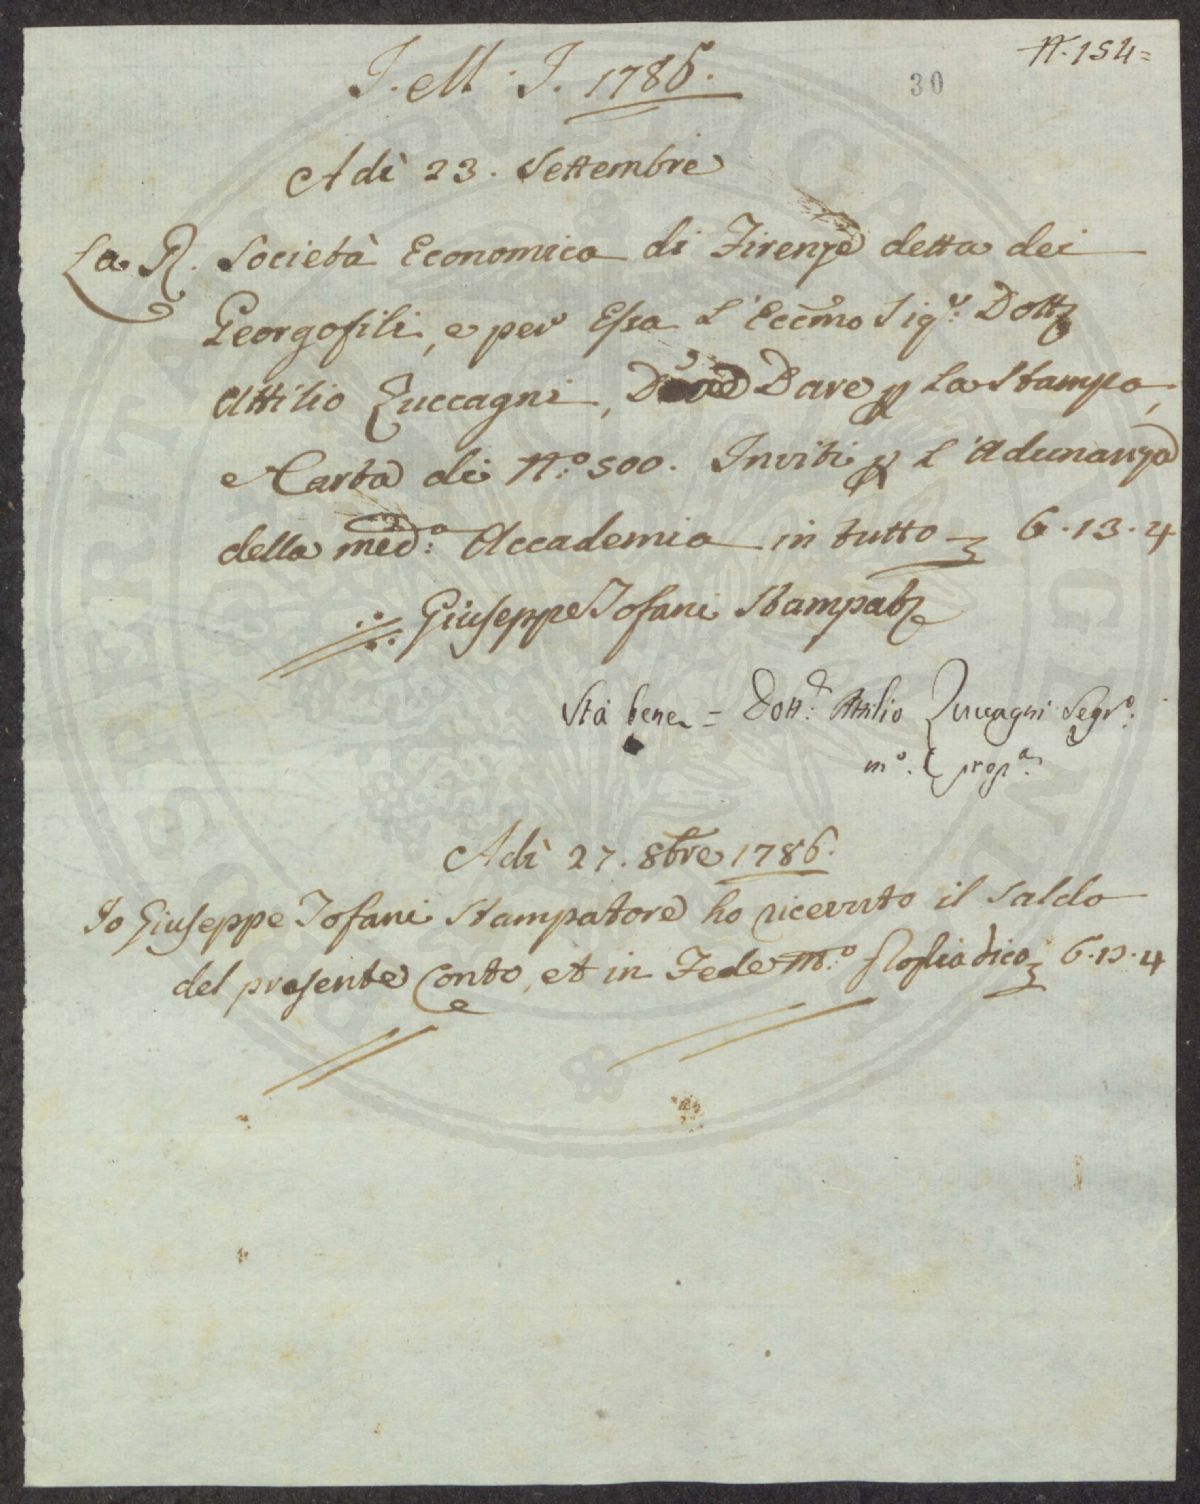 N. 154=
30
J. M. J. 1786.
Adì 23. Settembre
La R. Società Economica di Firenze detta dei
Georgofili, e per Essa L'Eccmo Sigr: Dottr
Attilio Zuccagni, Deve Dare p La Stampa,
e Carta di N.o 500. Inviti p L'Adunanza
della med:a Accademia in tutto 6.13.4
Giuseppe Tofani Stampatre
Stà bene = Dott:r Attilio Zuccagni Segr:o
m:o Prop:a
Adì 27. 8bre 1786.
Io Giuseppe Tofani Stampatore ho ricevuto il Saldo
del presente Conto, et in Fede M:o 6.13.4
PROSPERITATI PVBLICAE AVGENDAE